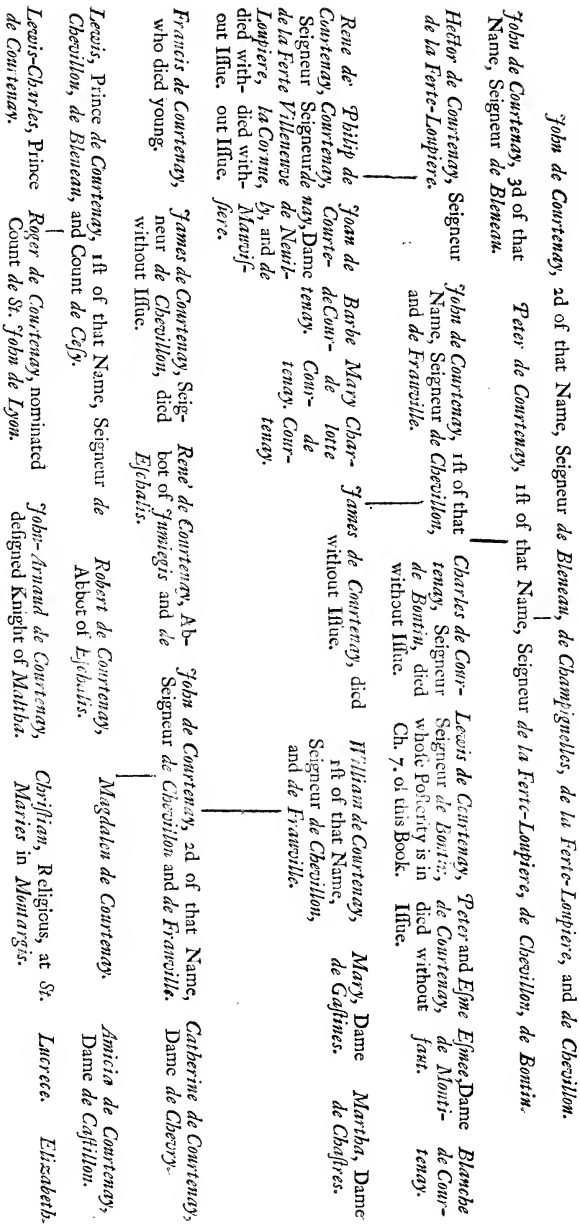 John de Courtenay, 2d of that Name, Seigneur de Bleneau, de Champignelles, de la Ferte-Loupiere, and de Chevillon.
John de Courtenay, 3d of that
Name, Seigneur de Bleneau.
Peter de Courtenay, 1ſt of that Name, Seigneur de la Ferte-Loupiere, de Chevillon, de Bontin.
Hector de Courtenay, Seigneur
de la Ferte-Loupiere.
John de Courtenay, 1ſt of that
Name, Seigneur de Chevillon,
and de Frauville.
Charles de Cour-
tenay, Seigneur
de Bontin, died
without Iſſue.
Lewis de Courtenay,
Seigneur de Bontin,
whoſe Poſterity is in
Ch. 7. of this Book.
Peter and Eſme
de Courtenay,
died without
Iſſue.
Eſmee, Dame
de Monti-
faut.
Blanche
de Cour-
tenay.
Rene de
Courtenay,
Seigneur
de la Ferte
Loupiere,
died with-
out Iſſue.
Philip de
Courtenay,
Seigneur de
Villeneuve
la Cornue,
died with-
out Iſſue.
Joan de
Courte-
nay, Dame
de Neuil-
ly, and de
Mauviſ-
ſiere.
Barbe
de Cour-
tenay.
Mary
de
Cour-
tenay.
Char-
lotte
de
Cour-
tenay.
James de Courtenay, died
without Iſſue.
William de Courtenay,
1ſt of that Name,
Seigneur de Chevillon,
and de Frauville.
Mary, Dame
de Gaſtines.
Martha, Dame
de Chaſtres.
Francis de Courtenay,
who died young.
James de Courtenay, Seig-
neur de Chevillon, died
without Iſſue.
René de Courtenay, Ab-
bot of Jumiegis and de
Eſchalis.
John de Courtenay, 2d of that Name,
Seigneur de Chevillon and de Frauville.
Catherine de Courtenay,
Dame de Chevry.
Lewis, Prince de Courtenay, 1ſt of that Name, Seigneur de
Chevillon, de Bleneau, and Count de Ceſy.
Robert de Courtenay,
Abbot of Eſchalis.
Magdalen de Courtenay.
Amicia de Courtenay,
Dame de Caſtillon.
Lewis-Charles, Prince
de Courtenay.
Roger de Courtenay, nominated
Count de St. John de Lyon.
John-Arnaud de Courtenay,
deſigned Knight of Maltha.
Chriſtian, Religious, at St.
Maries in Montargis.
Lucrece.
Elizabeth.